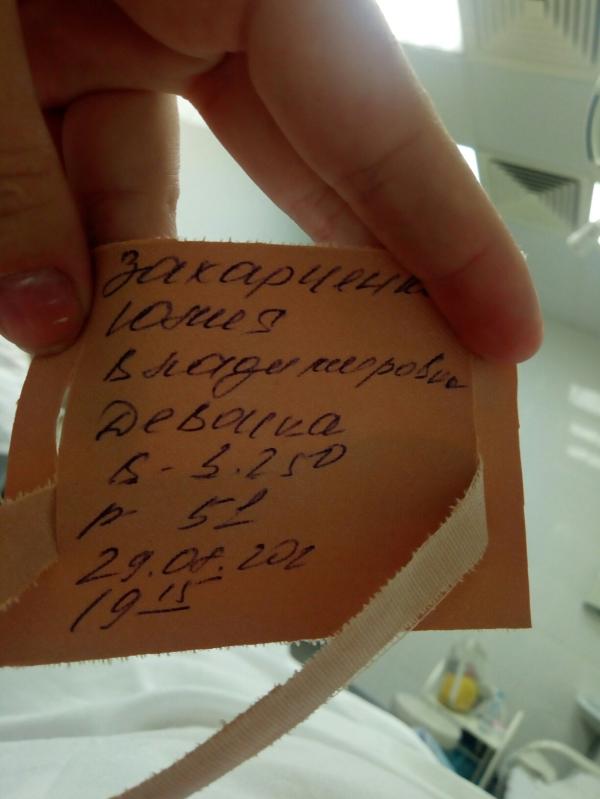 Захарченк
Юлия
Владимировна
Девочка
в - 3.250
р 51
29.08.202
19 15